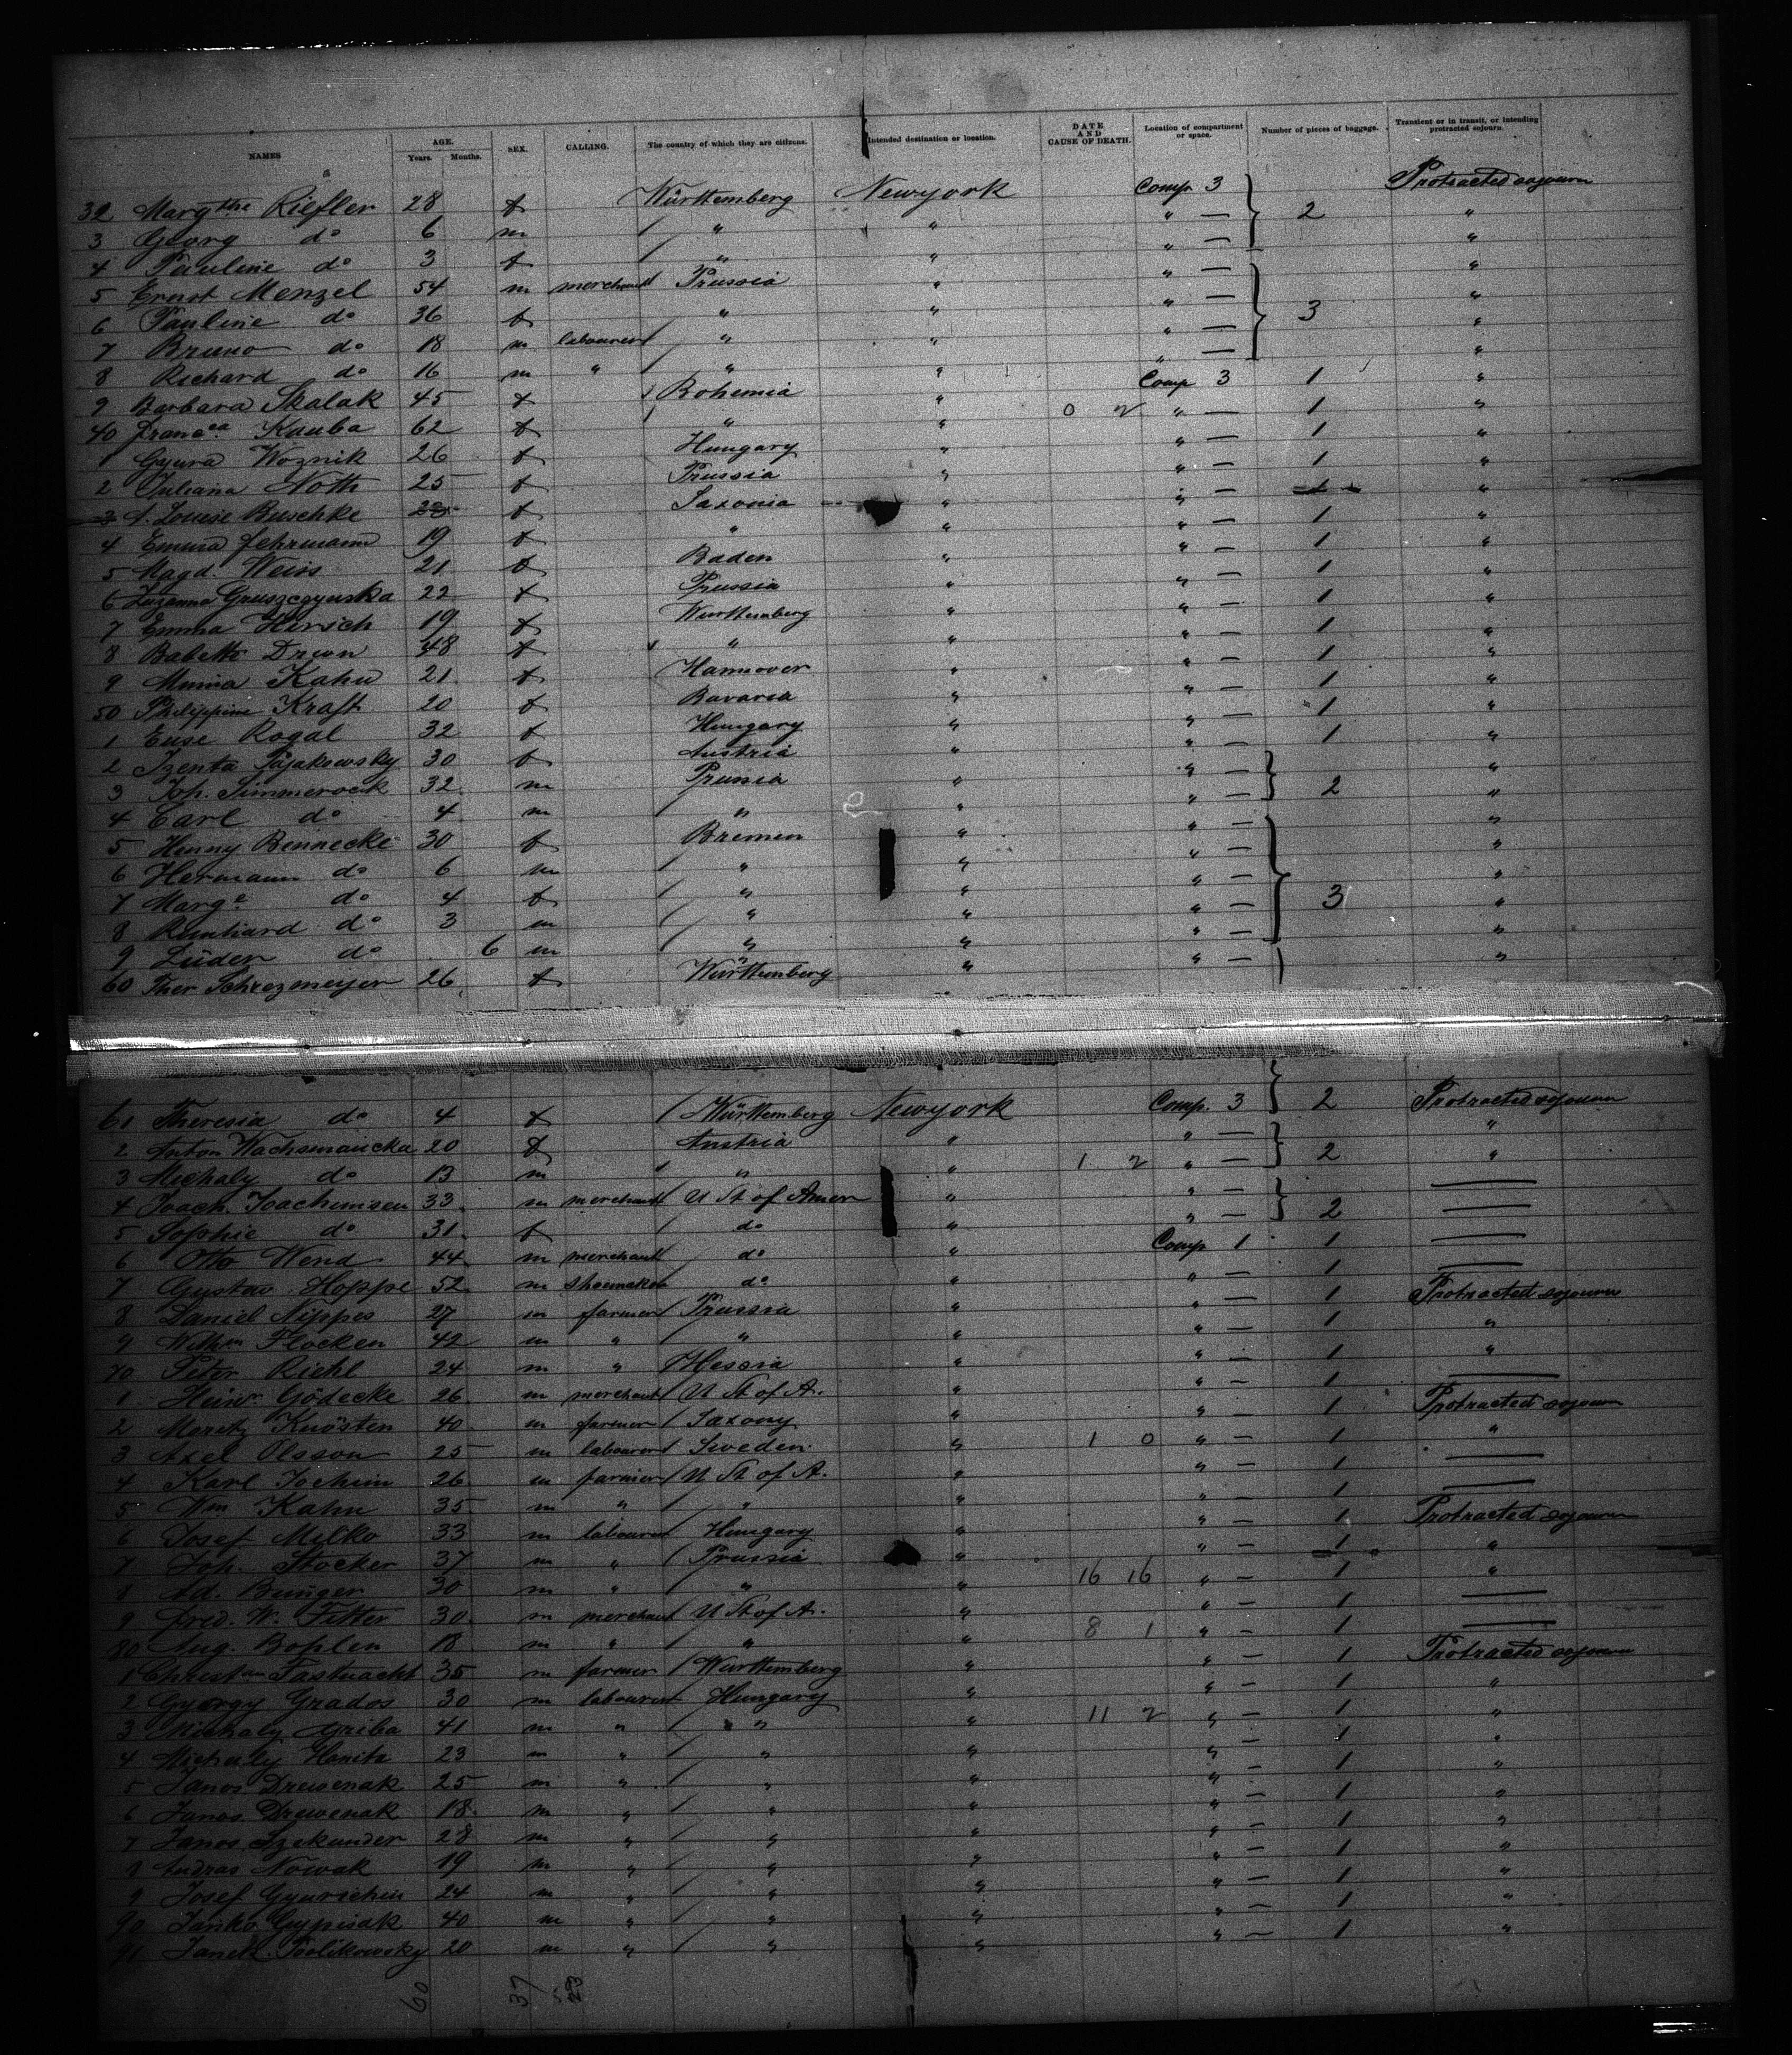 NAMES AGE. Years. Months. SEX. CALLING. The country of which they are citizens. Intended destination or location. DATE AND CAUSE OF DEATH. Location of compartment or space. Number of pieces of baggage. Transient or in transit, or intending protracted sojourn.
32 Margthe Riefler 28 f Württemberg Newyork Comp 3 Protracted sojourn
3 Georg do 6 m " " " — 2 "
4 Pauline do 3 f " " " — "
5 Ernst Menzel 54 m merchant Prussia " " — "
6 Pauline do 36 f " " " — 3 "
7 Bruno do 18 m labourer " " " — "
8 Richard do 16 m " " " " — "
9 Barbara Skalak 45 f Bohemia " Comp 3 1 "
40 Francca Kauba 62 f " " 0 2 " — 1 "
1 Gyura Woznik 26 f Hungary " " — 1 "
2 Juliana Noth 25 f Prussia " " — 1 "
3 A. Louise Buschke 23 f Saxonia " " — 1 "
4 Emma Fehrmann 19 f " " " — 1 "
5 Magd. Weiss 21 f Baden " " — 1 "
6 Zuzanna Gruszczynska 22 f Prussia " " — 1 "
7 Emma Hirsch 19 f Württemberg " " — 1 "
8 Babette 48 f " " " — 1 "
9 Minna Kahn 21 f Hannover " " — 1 "
50 Philippine Kraft 20 f Bavaria " " — 1 "
1 Euse Rogal 32 f Hungary " " — 1 "
2 Pajakowsky 30 f Austria " " — 1 "
3 Joh. 32 m Prussia " " — 2 "
4 Carl do 4 m " " " — "
5 Henny Bennecke 30 f Bremen " " — "
6 Hermann do 6 m " " " — "
7 Marge do 4 f " " " — 3 "
8 Reinhard do 3 m " " " — "
9 Lüder do 6 m " " " — "
60 Ther Schrezmeyer 26 f Württemberg " " — "
61 Theresia do 4 f Württemberg Newyork Comp. 3 2 Protracted sojourn
2 Anton 20 f Austria " " — "
3 Michaly do 13 m " " 1 2 " — 2 "
4 Joach. Joachimsen 33 m merchant U St of Amer " " — —
5 Sophie do 31 f do " " — 2 —
6 Otto Wend 44 m merchant do " Comp 1 1 —
7 Gustav Hoppe 52 m shoemaker do " " — 1 —
8 Daniel Nippes 27 m farmer Prussia " " — 1 Protracted sojourn
9 Wilhm Flocken 42 m " " " " — 1 "
70 Peter Riehl 24 m " Hessia " " — 1 "
1 Heinr. Gödecke 26 m merchant U St of A. " " — 1 —
2 Moritz Knösten 40 m farmer Saxony " " — 1 Protracted sojourn
3 Axel Olsson 25 m labourer Sweden " 1 0 " — 1 "
4 Karl Jochim 26 m farmer U St of A. " " — 1 —
5 Wm Kahn 35 m " " " " — 1 —
6 Josef Milko 33 m labourer Hungary " " — 1 Protracted sojourn
7 Joh. Stocker 37 m " Prussia " " — 1 "
8 Ad. Bunger 30 m " " " 16 16 " — 1 "
9 Fred. W. Fitter 30 m merchant U St of A. " " — 1 —
80 Aug. Bohlen 18 m " " " 8 1 " — 1 —
1 Christian Fastnacht 35 m farmer Württemberg " " — 1 Protracted sojourn
2 György Grados 30 m labourer Hungary " " — 1 "
3 Michaly Griba 41 m " " " 11 2 " — 1 "
4 Michaly Hanita 23 m " " " " — 1 "
5 Janos Drewenak 25 m " " " " — 1 "
6 Janos Drewenak 18 m " " " " — 1 "
7 Janos Szekunder 28 m " " " " — 1 "
8 Andras Nowak 19 m " " " " — 1 "
9 Josef 24 m " " " " — 1 "
90 Janko 40 m " " " " — 1 "
91 Janek 20 m " " " " — 1 "
60 37 23